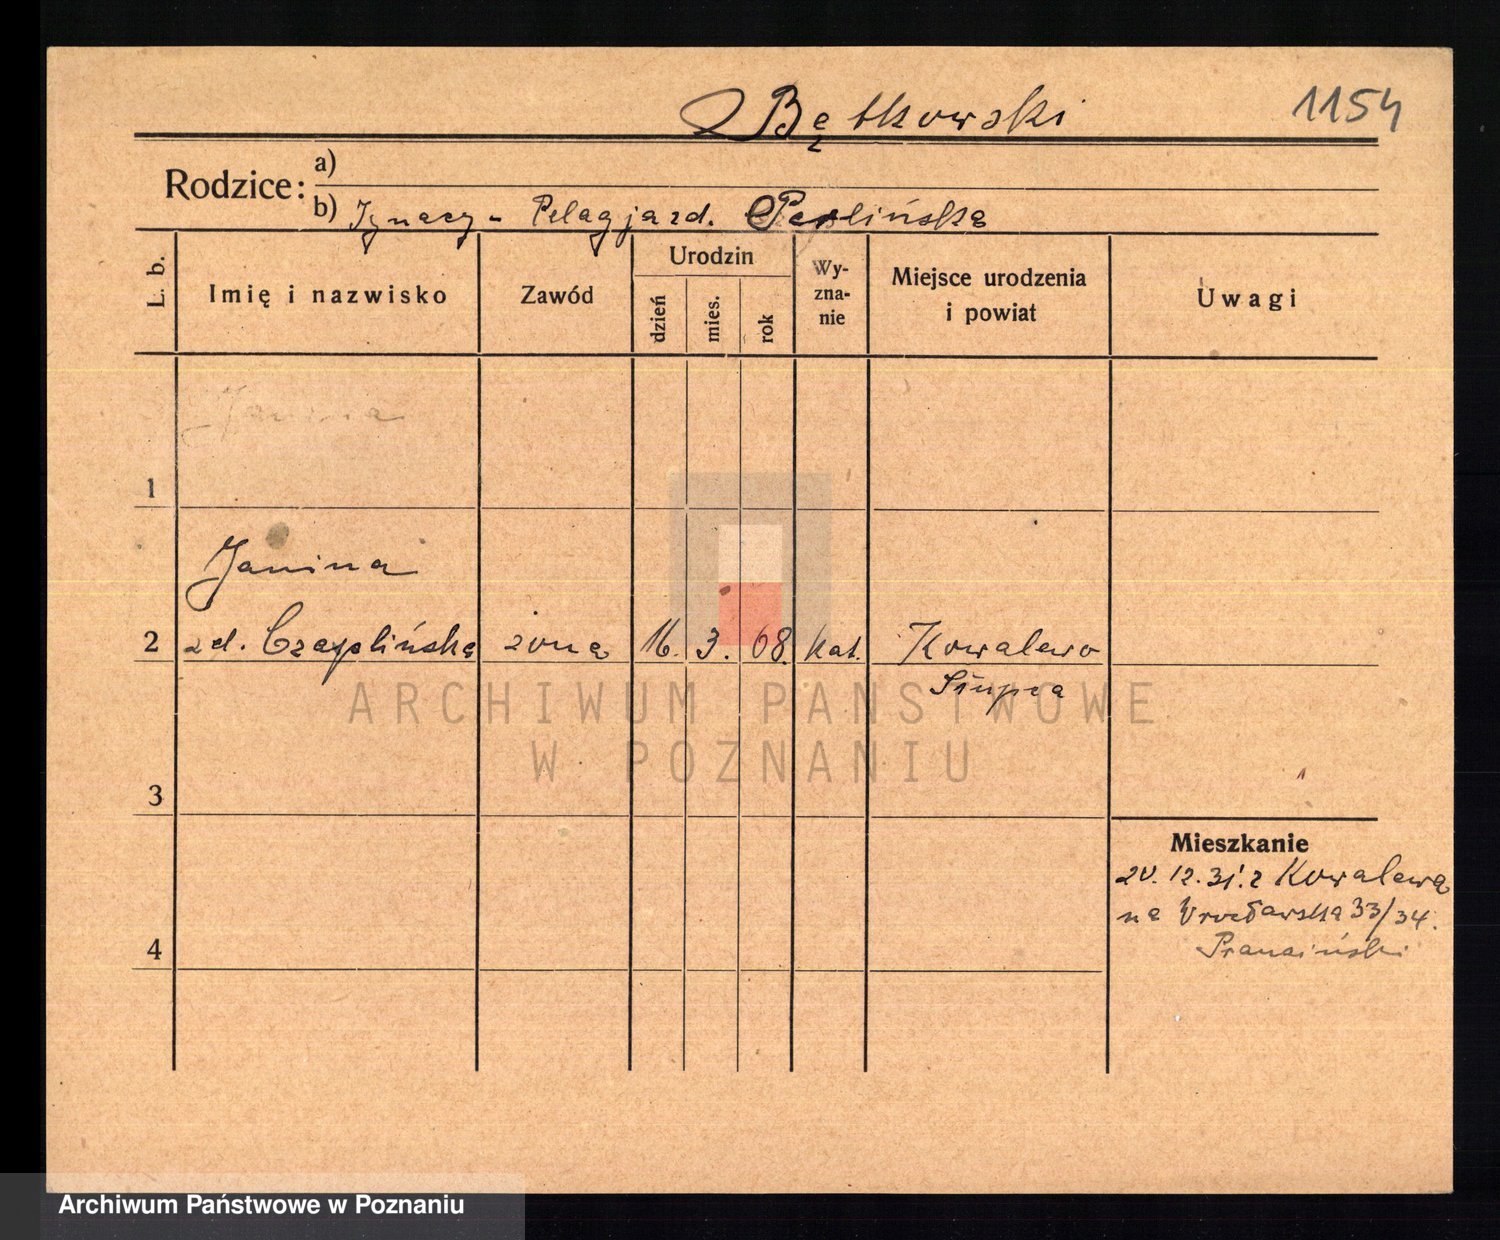 Bętkowski
1154
Rodzice:
a)
b) Ignacy - Pelagja zd. Perlińska
L. b.
Imię i nazwisko
Zawód
Urodzin
dzień
mies.
rok
Wy-
zna-
nie
Miejsce urodzenia
i powiat
Uwagi
Janina
1
Janina
2 zd. Czaplińska żona 16. 3. 08. kat. Kowalewo
Słupca
3
Mieszkanie
20.12.31. z Kowalewa
na Wrocławska 33/34.
4
ARCHIWUM PAŃSTWOWE
W POZNANIU
Archiwum Państwowe w Poznaniu